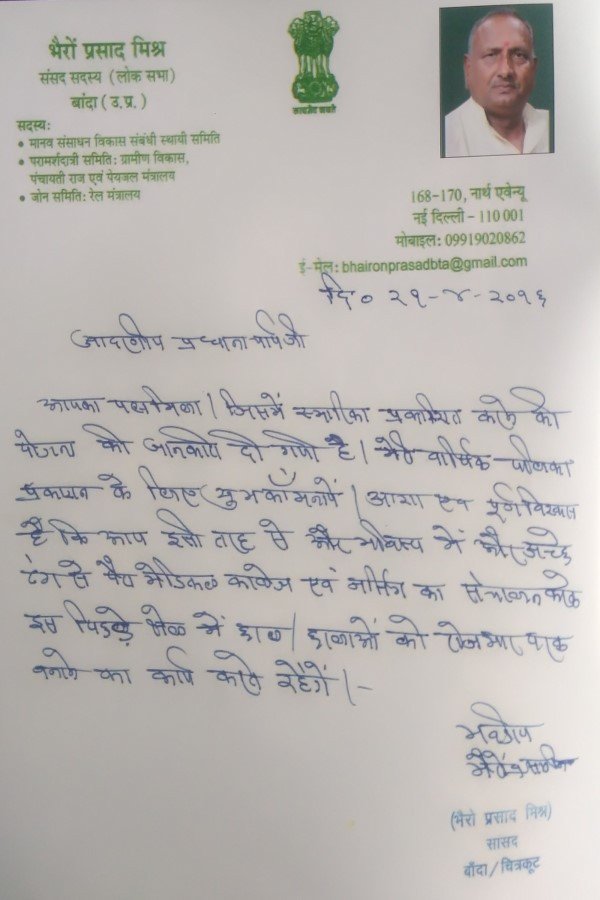 भैरों प्रसाद मिश्र
संसद सदस्य (लोक सभा)
बांदा (उ.प्र.)
सदस्य:
• मानव संसाधन विकास संबंधी स्थायी समिति
• परामर्शदात्री समिति: ग्रामीण विकास,
पंचायती राज एवं पेयजल मंत्रालय
• जोन समिति: रेल मंत्रालय
सत्यमेव जयते
168-170, नार्थ एवेन्यू
नई दिल्ली - 110 001
मोबाइल: 09919020862
ई-मेल: bhaironprasadbta@gmail.com
दि० २१-४-२०१६
आदरणीय प्रधानाचार्य जी
आपका पत्र मिला। जिसमें स्मारिका प्रकाशित करने की
योजना की जानकारी दी गयी है। मेरी वार्षिक पत्रिका
प्रकाशन के लिए शुभकामनायें। आशा एवं पूर्ण विश्वास
है कि आप इसी तरह से और भविष्य में और अच्छे
ढंग से पैरा मेडिकल कालेज एवं नर्सिंग का संचालन करके
इस पिछड़े क्षेत्र में छात्र/छात्राओं को रोजगार परक
बनाने का कार्य करते रहेंगें।-
भवदीय
भैरों प्रसाद मिश्र
(भैरो प्रसाद मिश्र)
सासद
बाँदा/चित्रकूट